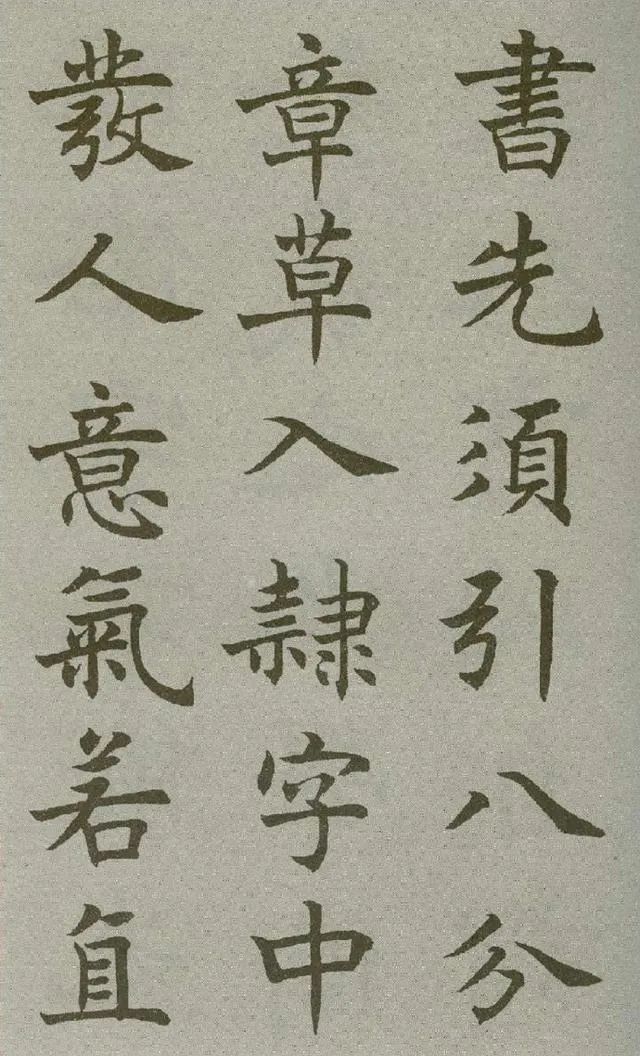 書先須引八分
章草入隸字中
發人意氣若直